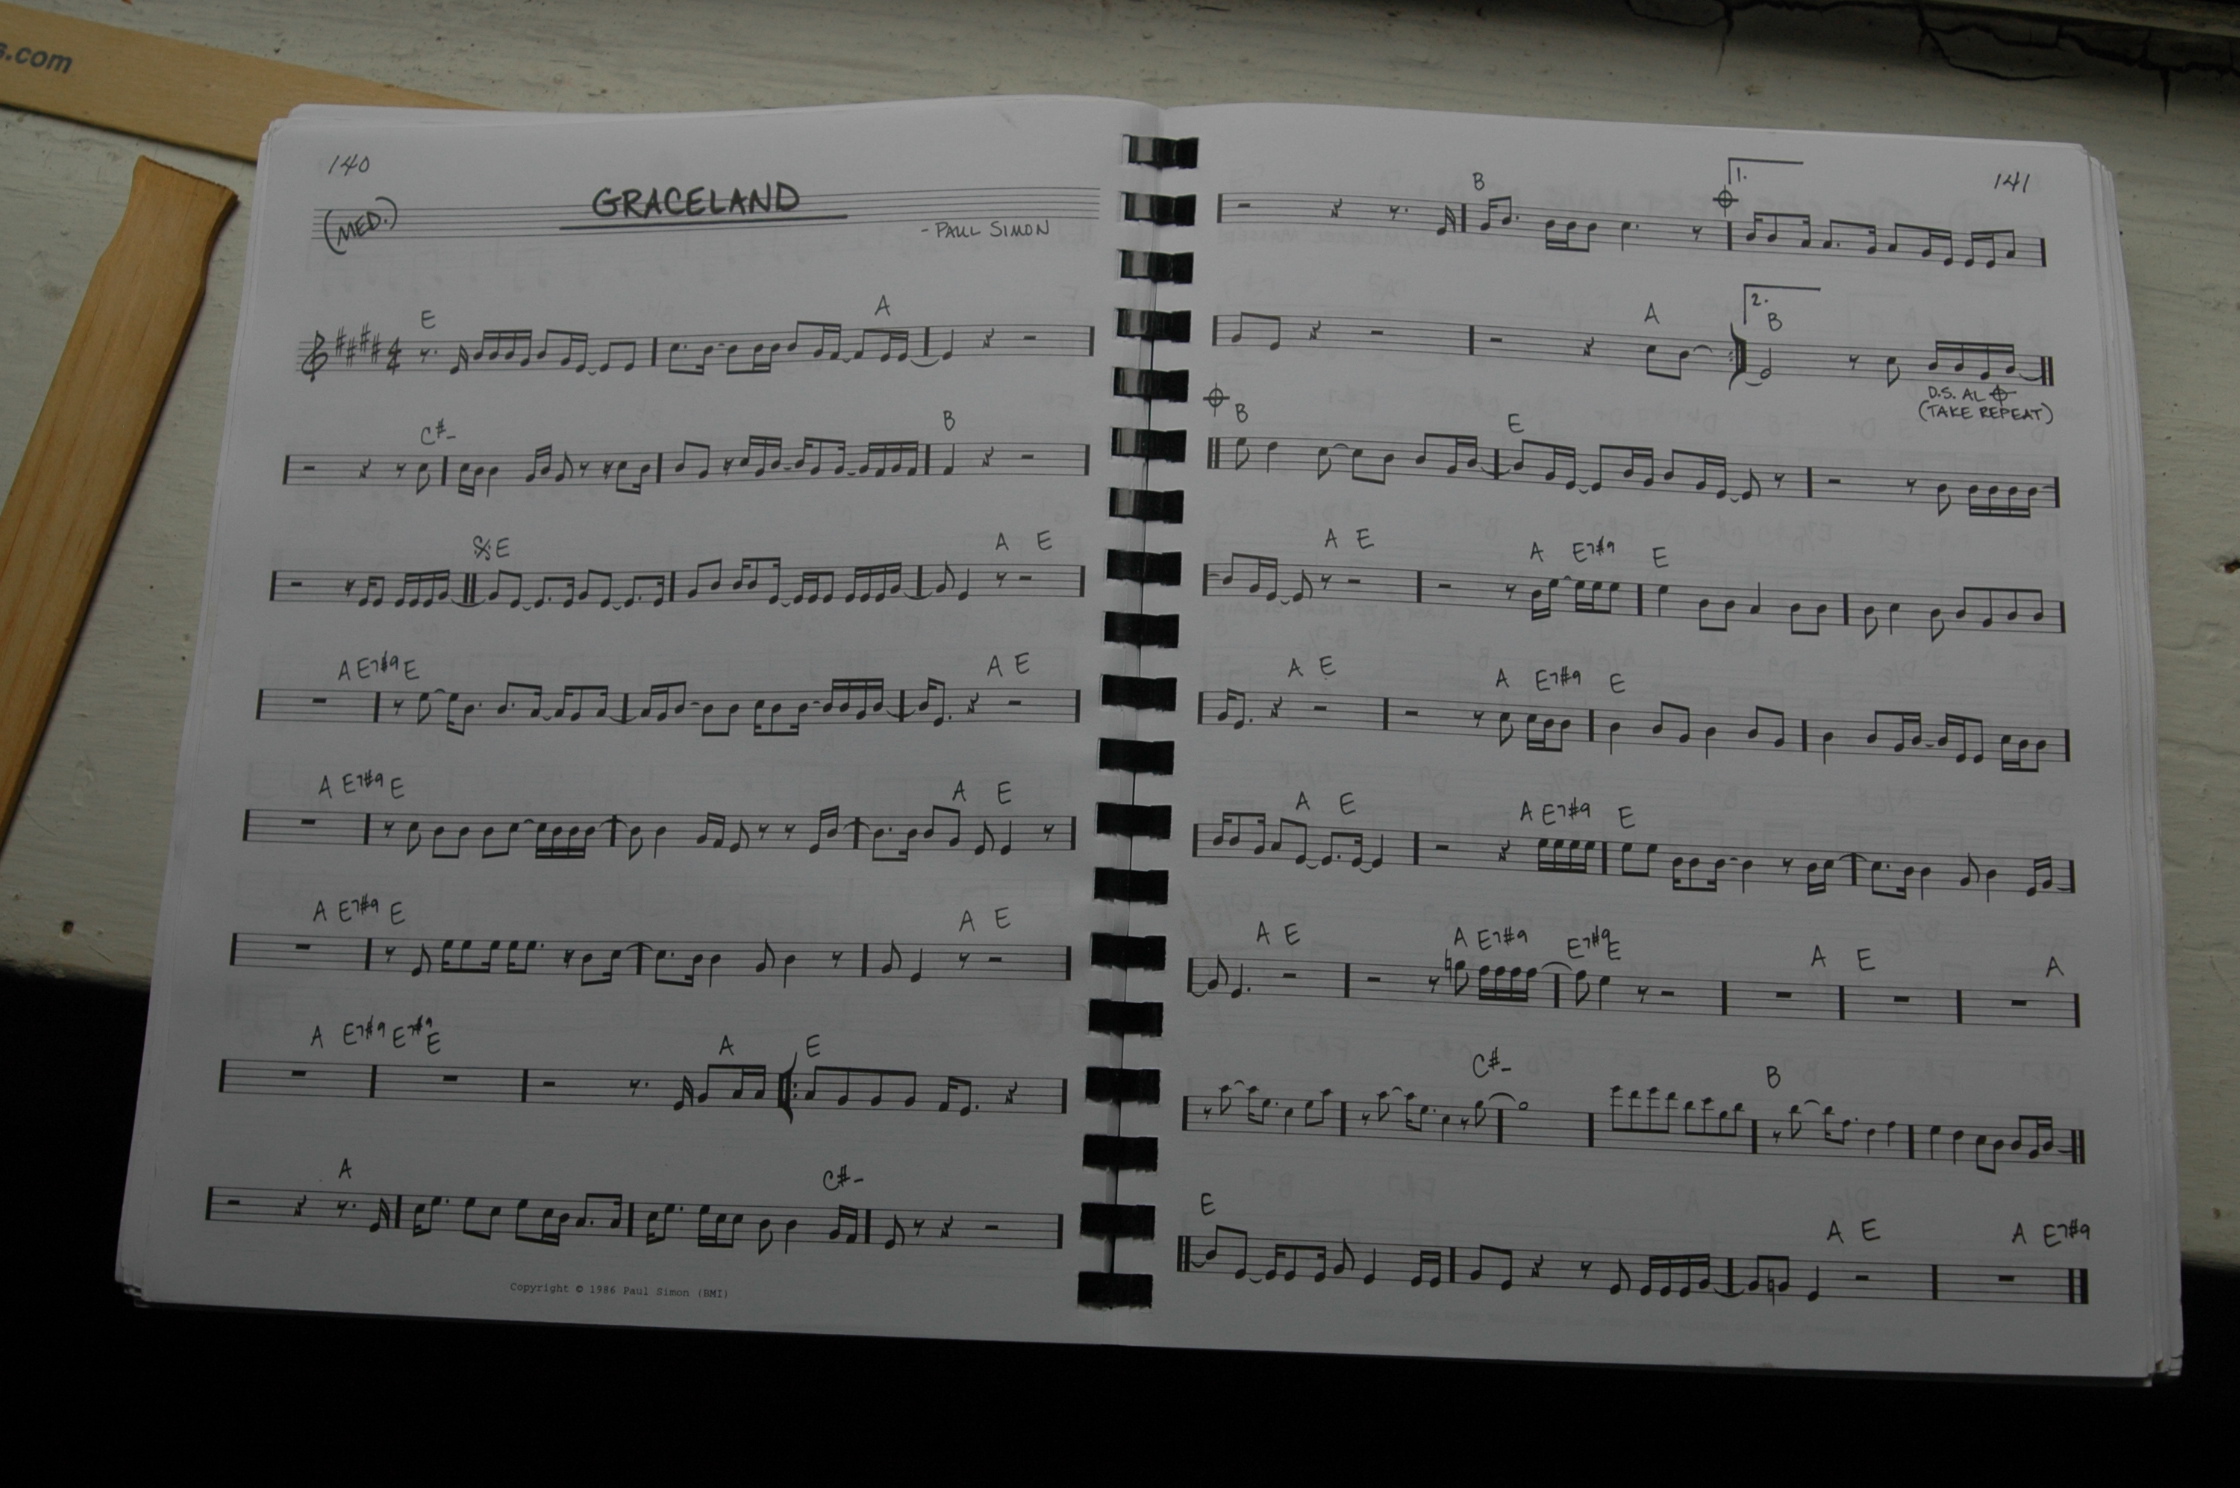 s.com
140
GRACELAND
(MED.)
- PAUL SIMON
E A
C#- B
E A E
A E7#9 E A E
A E7#9 E A E
A E7#9 E A E
A E7#9 E7#9 E A E
A C#-
Copyright © 1986 Paul Simon (BMI)
141
B 1.
A 2. B
D.S. AL
(TAKE REPEAT)
B E
A E A E7#9 E
A E A E7#9 E
A E A E7#9 E
A E A E7#9 E7#9 E A E A
C#- B
E A E A E7#9